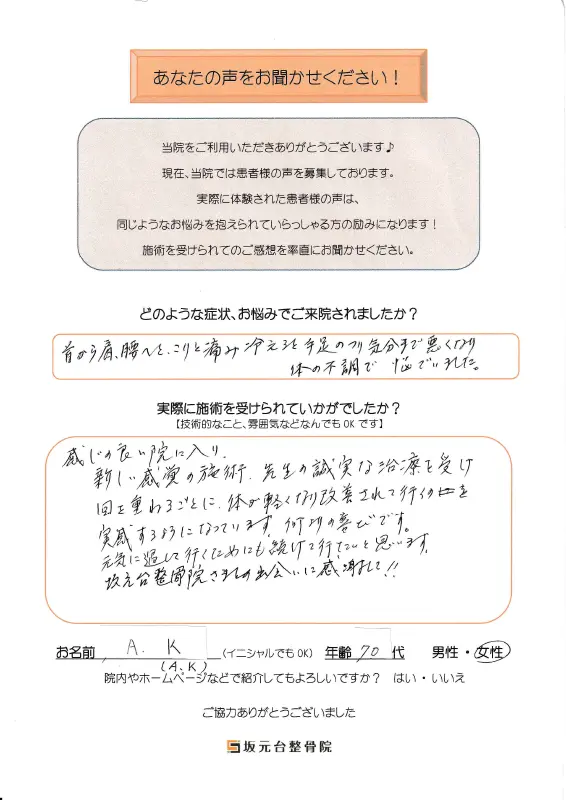 あなたの声をお聞かせください！
当院をご利用いただきありがとうございます♪
現在、当院では患者様の声を募集しております。
実際に体験された患者様の声は、
同じようなお悩みを抱えられていらっしゃる方の励みになります！
施術を受けられてのご感想を率直にお聞かせください。
どのような症状、お悩みでご来院されましたか？
首から肩、腰へと、こりと痛み 冷えると手足のつり気分まで悪くなり
体の不調で 悩でいました。
実際に施術を受けられていかがでしたか？
【技術的なこと、雰囲気などなんでもOKです】
感じの良い院に入り、
新しい感覚の施術、先生の誠実な治療を受け
回を重ねるごとに、体が軽くなり改善されて行くのを
実感するようになっています。何よりの喜びです。
元気に過して行くためにも続けて行たいと思います。
坂元台整骨院さまとの出会いに感謝して！！
お名前 A. K (イニシャルでもOK) 年齢 70 代 男性・女性
(A.K)
院内やホームページなどで紹介してもよろしいですか？ はい・いいえ
ご協力ありがとうございました
坂元台整骨院